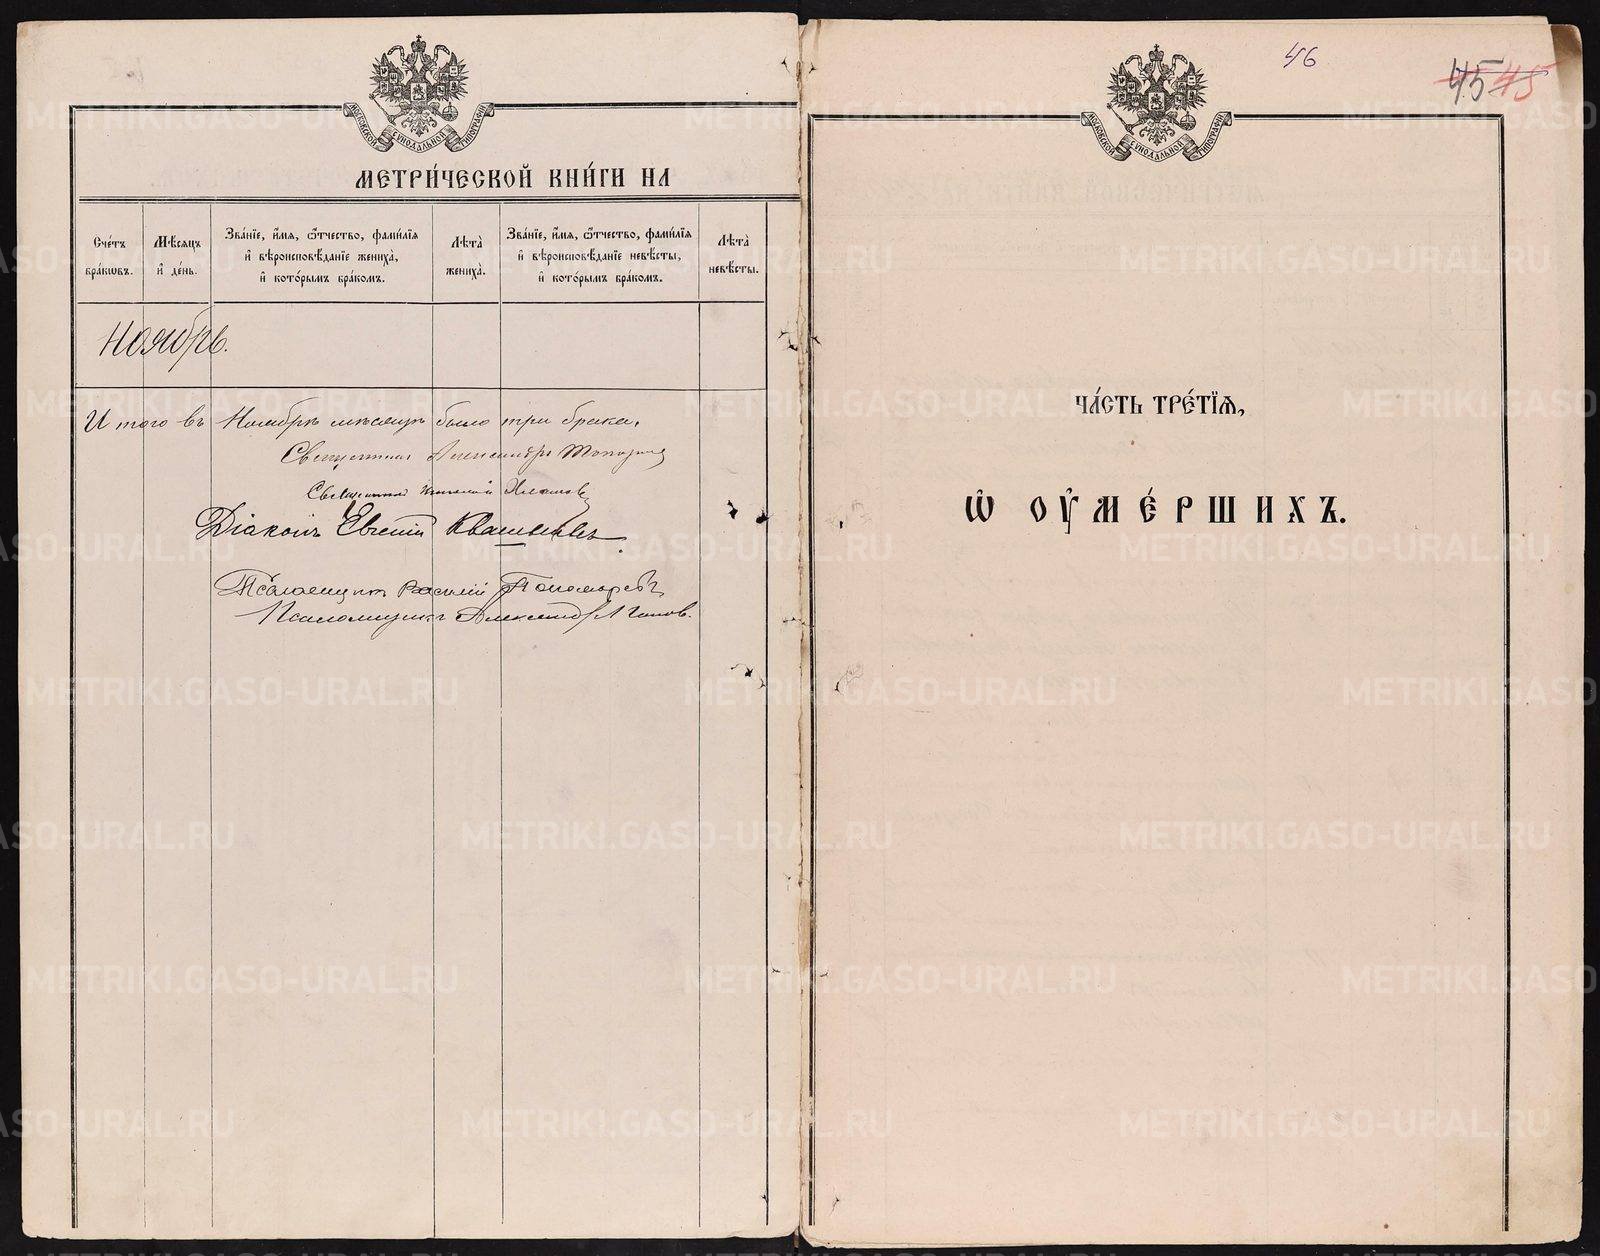 МОСКОВСКОЙ СѴНОДАЛЬНОЙ ТИПОГРАФІИ
МЕТРИ́ЧЕСКОЙ КНИ́ГИ НА
Сче́тъ бра́кѡвъ.
Мѣ́сяцъ и҆ де́нь.
Зва́нїе, и҆́мѧ, ѻ҆́тчество, фами́лїѧ
и҆ вѣроисповѣ́данїе жениха̀,
и҆ кото́рымъ бра́комъ.
Лѣ́та жениха̀.
Зва́нїе, и҆́мѧ, ѻ҆́тчество, фами́лїѧ
и҆ вѣроисповѣ́данїе невѣ́сты,
и҆ кото́рымъ бра́комъ.
Лѣ́та невѣ́сты.
Ноябрь.
И того въ Ноябрѣ мѣсяцѣ было три брака.
Священникъ Александръ Топорковъ
Священникъ
Діаконъ Евгеній
Псаломщикъ Василій Пономаревъ
Псаломщикъ Александръ Поповъ.
46
45 45
МОСКОВСКОЙ СѴНОДАЛЬНОЙ ТИПОГРАФІИ
ЧА́СТЬ ТРЕ́ТЇѦ,
Ѡ҆ ОУ҆МЕ́РШИХЪ.
METRIKI.GASO-URAL.RU